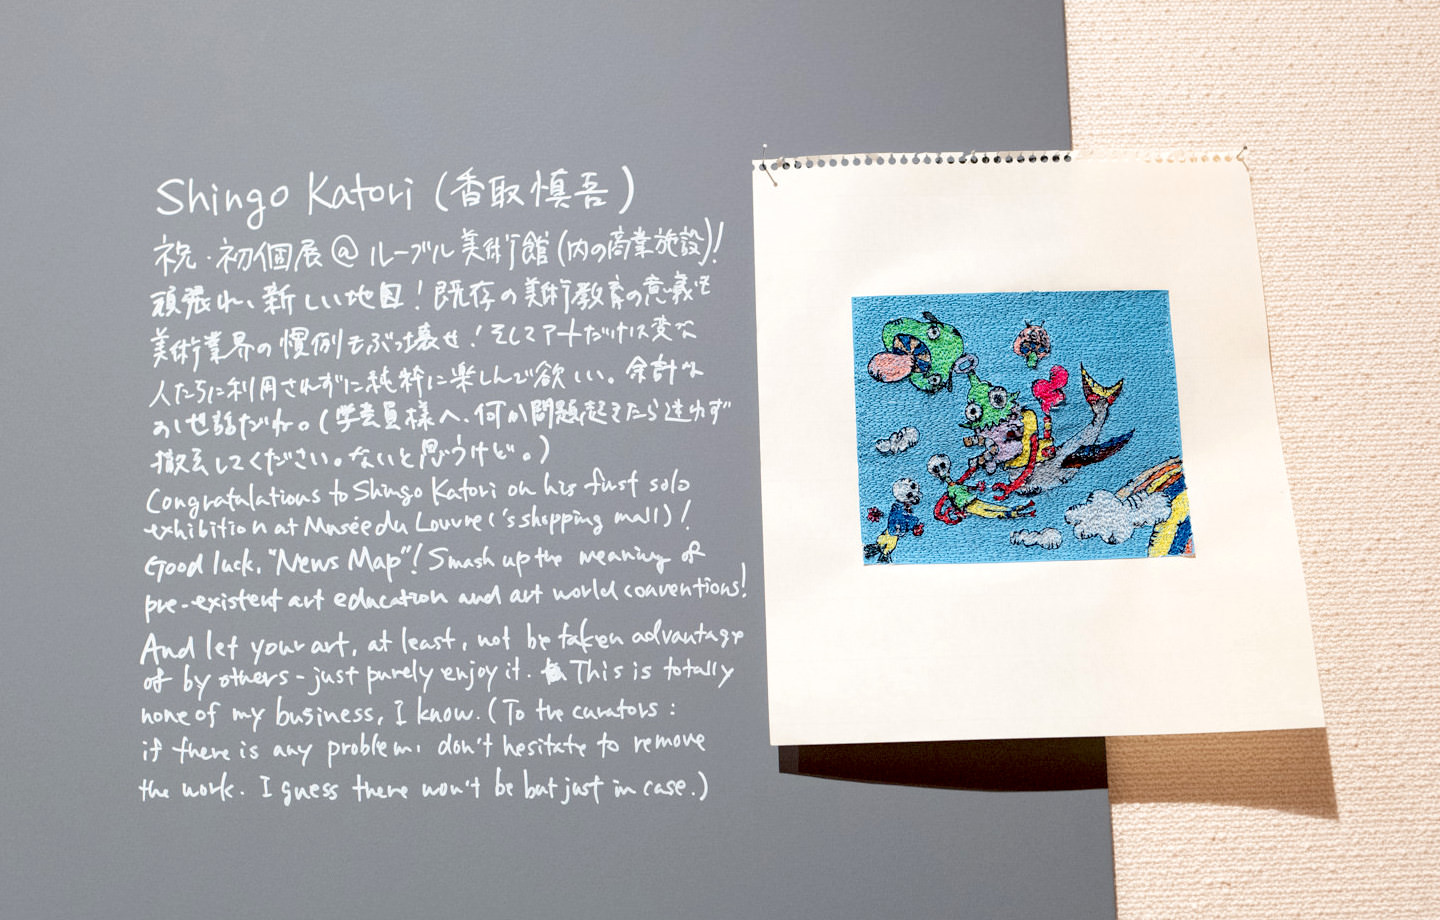 Shingo Katori (香取慎吾)
祝・初個展@ルーブル美術館(内の商業施設)!
頑張れ、新しい地図!既存の美術教育の意義も
美術業界の慣例もぶっ壊せ!そしてアートだけは変な
人たちに利用されずに純粋に楽しんで欲しい。余計な
お世話だわ。(学芸員様へ、何か問題起きたら迷わず
撤去してください。ないと思うけど。)
Congratulations to Shingo Katori on his first solo
exhibition at Musée du Louvre ('s shopping mall)!
Good luck, "News Map"! Smash up the meaning of
pre-existent art education and art world conventions!
And let your art, at least, not be taken advantage
of by others - just purely enjoy it. This is totally
none of my business, I know. (To the curators :
if there is any problem, don't hesitate to remove
the work. I guess there won't be but just in case.)